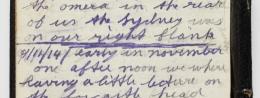 the omera in the rear
of us the Sydney was
on our right flank
9/11/14/ early in november
one after noon we where
having a little lecture on
the head